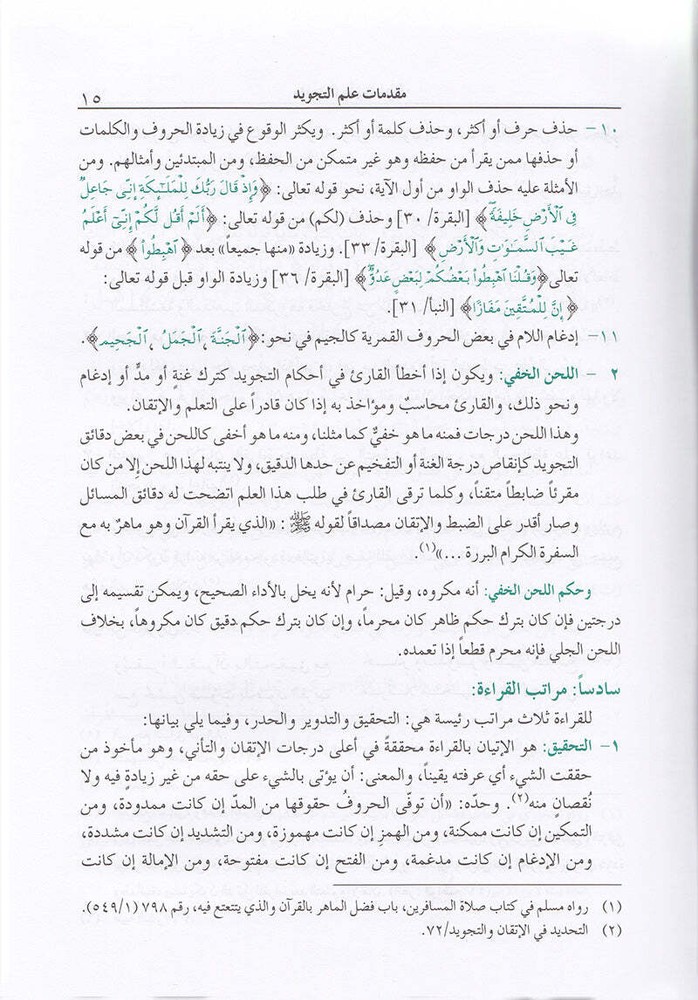 مقدمات علم التجويد ١٥
١٠- حذف حرف أو أكثر، وحذف كلمة أو أكثر. ويكثر الوقوع في زيادة الحروف والكلمات
أو حذفها ممن يقرأ من حفظه وهو غير متمكن من الحفظ، ومن المبتدئين وأمثالهم. ومن
الأمثلة عليه حذف الواو من أول الآية، نحو قوله تعالى: ﴿وَإِذْ قَالَ رَبُّكَ لِلْمَلَٰٓئِكَةِ إِنِّى جَاعِلٌ
فِى ٱلْأَرْضِ خَلِيفَةً﴾ [البقرة/ ٣٠] وحذف (لكم) من قوله تعالى: ﴿أَلَمْ أَقُل لَّكُمْ إِنِّىٓ أَعْلَمُ
غَيْبَ ٱلسَّمَٰوَٰتِ وَٱلْأَرْضِ﴾ [البقرة/ ٣٣]. وزيادة «منها جميعاً» بعد ﴿ٱهْبِطُوا۟﴾ من قوله
تعالى ﴿وَقُلْنَا ٱهْبِطُوا۟ بَعْضُكُمْ لِبَعْضٍ عَدُوٌّ﴾ [البقرة/ ٣٦] وزيادة الواو قبل قوله تعالى:
﴿إِنَّ لِلْمُتَّقِينَ مَفَازًا﴾ [النبأ/ ٣١].
١١- إدغام اللام في بعض الحروف القمرية كالجيم في نحو: ﴿ٱلْجَنَّةَ، ٱلْجَمَلُ، ٱلْجَحِيمِ﴾.
٢ - اللحن الخفي: ويكون إذا أخطأ القارئ في أحكام التجويد كترك غنةٍ أو مدٍّ أو إدغام
ونحو ذلك، والقارئ محاسبٌ ومؤاخذ به إذا كان قادراً على التعلم والإتقان.
وهذا اللحن درجات فمنه ما هو خفيٌّ كما مثلنا، ومنه ما هو أخفى كاللحن في بعض دقائق
التجويد كإنقاص درجة الغنة أو التفخيم عن حدها الدقيق، ولا ينتبه لهذا اللحن إلا من كان
مقرئاً ضابطاً متقناً، وكلما ترقى القارئ في طلب هذا العلم اتضحت له دقائق المسائل
وصار أقدر على الضبط والإتقان مصداقاً لقوله ﷺ : «الذي يقرأ القرآن وهو ماهرٌ به مع
السفرة الكرام البررة ...»(١).
وحكم اللحن الخفي: أنه مكروه، وقيل: حرام لأنه يخل بالأداء الصحيح، ويمكن تقسيمه إلى
درجتين فإن كان بترك حكم ظاهر كان محرماً، وإن كان بترك حكم دقيق كان مكروهاً، بخلاف
اللحن الجلي فإنه محرم قطعاً إذا تعمده.
سادساً: مراتب القراءة:
للقراءة ثلاث مراتب رئيسة هي: التحقيق والتدوير والحدر، وفيما يلي بيانها:
١- التحقيق: هو الإتيان بالقراءة محققةً في أعلى درجات الإتقان والتأني، وهو مأخوذ من
حققت الشيء أي عرفته يقيناً، والمعنى: أن يؤتى بالشيء على حقه من غير زيادةٍ فيه ولا
نُقصانٍ منه(٢). وحدّه: «أن توفّى الحروفُ حقوقها من المدّ إن كانت ممدودة، ومن
التمكين إن كانت ممكنة، ومن الهمزِ إن كانت مهموزة، ومن التشديد إن كانت مشددة،
ومن الإدغام إن كانت مدغمة، ومن الفتح إن كانت مفتوحة، ومن الإمالة إن كانت
(١) رواه مسلم في كتاب صلاة المسافرين، باب فضل الماهر بالقرآن والذي يتتعتع فيه، رقم ٧٩٨ (٥٤٩/١).
(٢) التحديد في الإتقان والتجويد/٧٢.